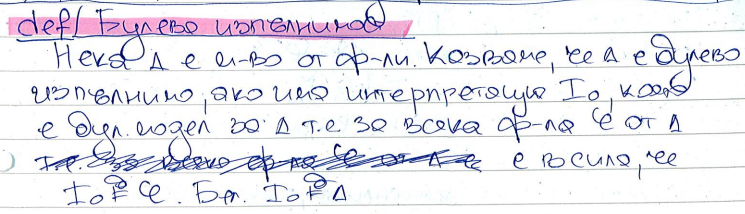 def/ Булево изпълнимо
Нека Δ е м-во от ф-ли. Казваме, че Δ е булево
изпълнимо, ако има интерпретация I₀, която
е бул. модел за Δ т.е за всяка ф-ла φ от Δ
е в сила, че
I₀ ⊨ φ. Бел. I₀ ⊨ Δ